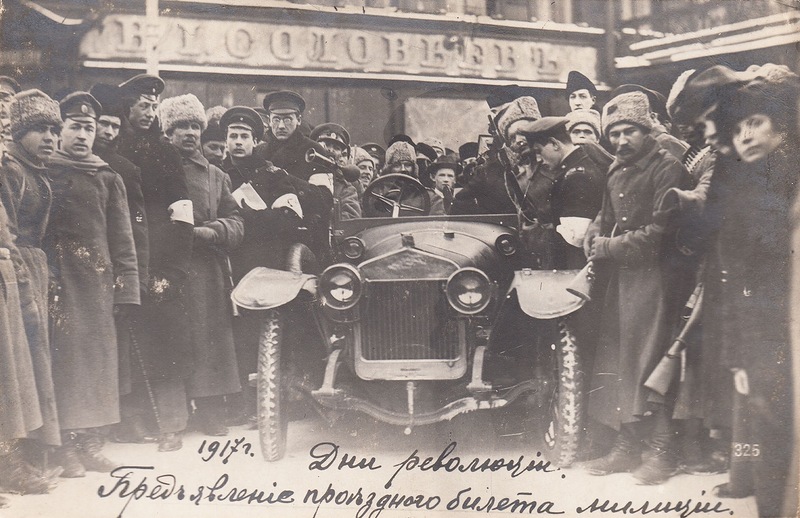 Н.Г.СОЛОВЬЕВЪ
325
1917г. Дни революціи.
Предъявленіе проѣзднаго билета милиціи.